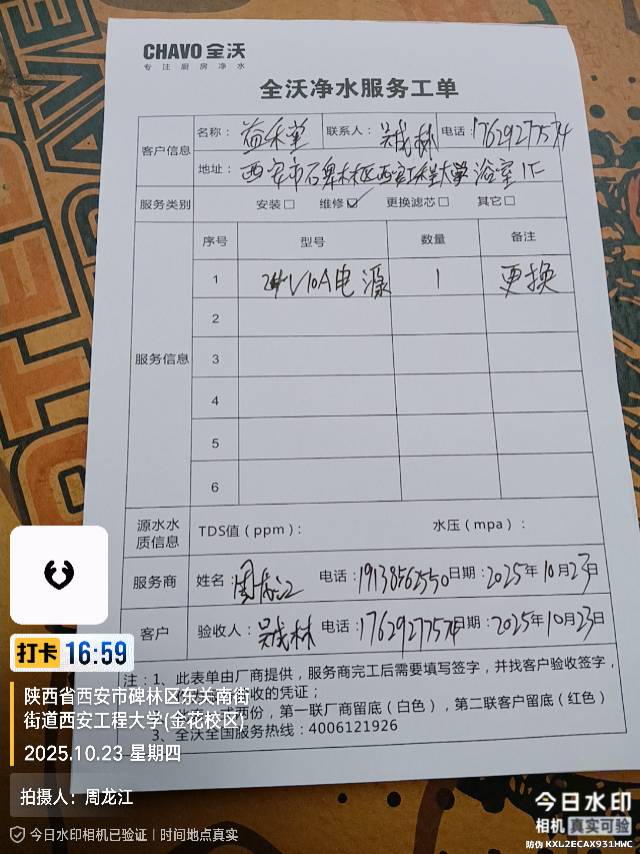 CHAVO 全沃
专注厨房净水
全沃净水服务工单
客户信息 名称：益禾堂 联系人：吴成林 电话：17629277574
地址：西安市碑林区西安工程大学浴室1F
服务类别 安装□ 维修☑ 更换滤芯□ 其它□
服务信息
序号 型号 数量 备注
1 24V10A电源 1 更换
2
3
4
5
6
源水水质信息 TDS值（ppm）： 水压（mpa）：
服务商 姓名：周龙江 电话：19138562550 日期：2025年10月23日
客户 验收人：吴成林 电话：17629277574 日期：2025年10月23日
注：1、此表单由厂商提供，服务商完工后需要填写签字，并找客户验收签字，
收的凭证；
份，第一联厂商留底（白色），第二联客户留底（红色）
3、全沃全国服务热线：4006121926
打卡 16:59
陕西省西安市碑林区东关南街
街道西安工程大学(金花校区)
2025.10.23 星期四
拍摄人：周龙江
今日水印相机已验证｜时间地点真实
今日水印
相机 真实可验
防伪 KXL2ECAX931HWC